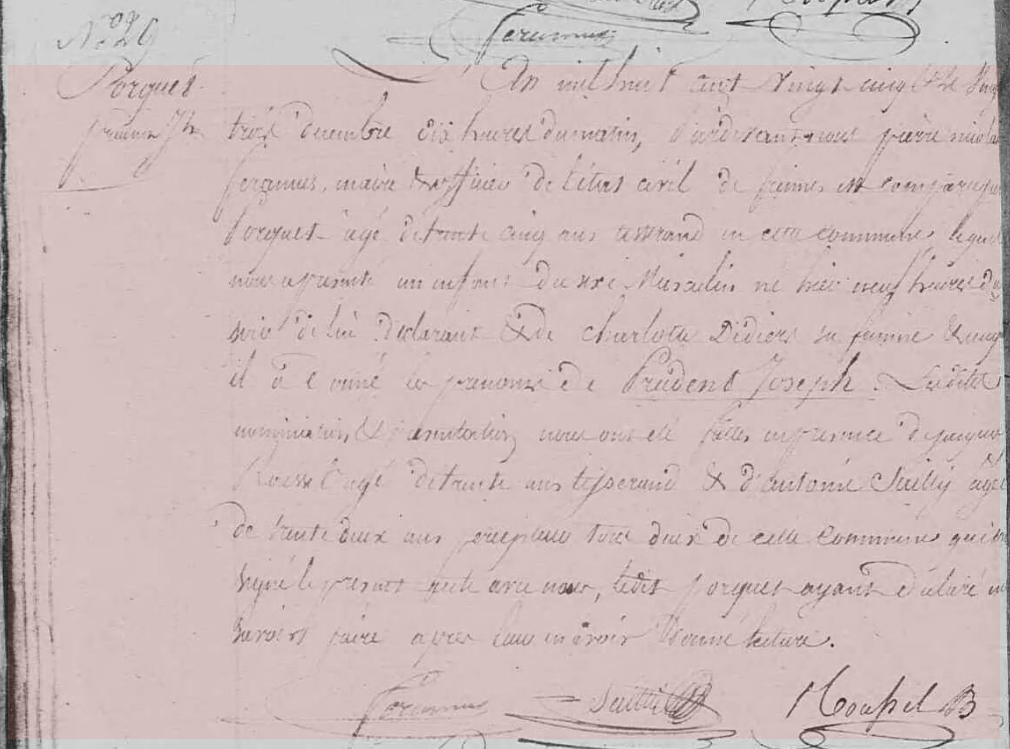 No 29
Porquet
prudent Jh
An mil huit cent vingt cinq le vingt
trois decembre dix heures du matin, pardevant nous pierre nicolas
maire & officier de l'état civil de est comparu
Porquet agé de trente cinq ans tisserand en cette commune lequel
nous a presenté un enfant du sexe Masculin né hier neuf heures du
soir de lui declarant & de Charlotte Didier sa femme & auquel
il a donné les prenoms de Prudent Joseph. Lesdites
& presentation nous ont été faites en presence de jacques
Roussel agé de trente ans tisserand & d'antoine agé
de trente deux ans tous deux de cette commune qui ont
signé le present acte avec nous, ledit porquet ayant déclaré ne
savoir faire apres leur en avoir donné lecture.
Roussel B